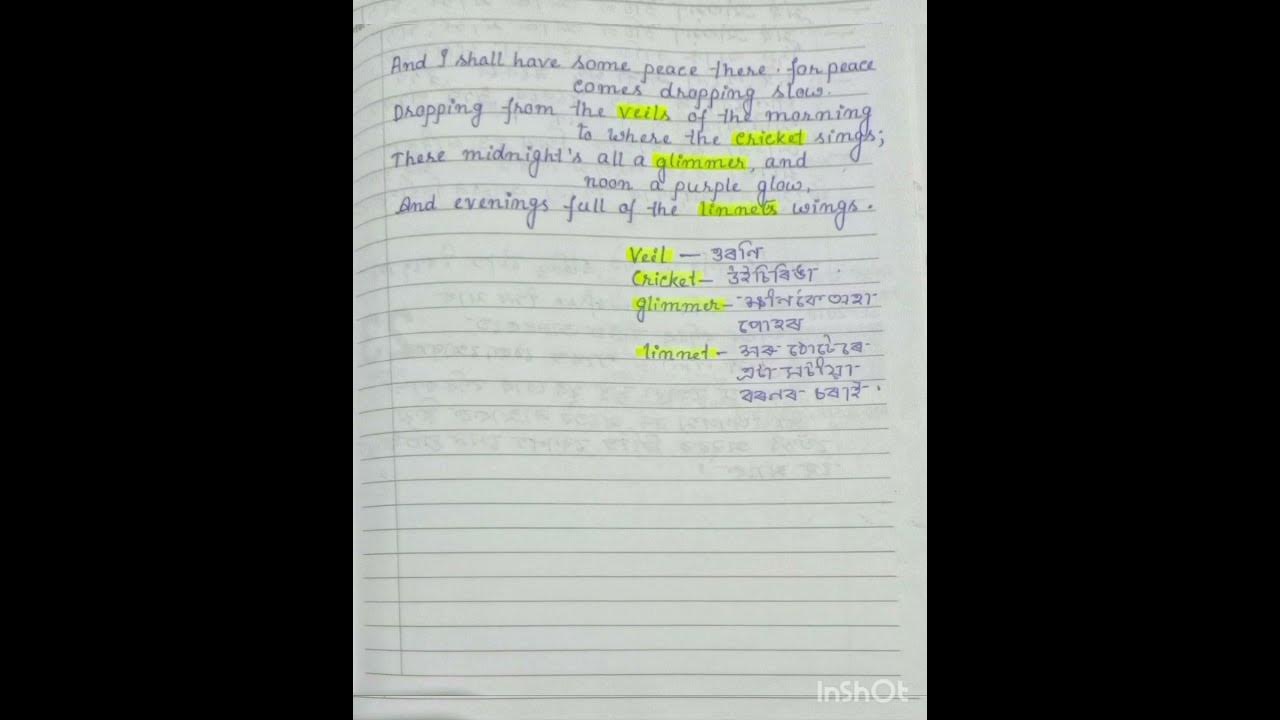 And I shall have some peace there. for peace
comes dropping slow.
Dropping from the veils of the morning
to where the cricket sings;
There midnight's all a glimmer, and
noon a purple glow,
And evenings full of the linnets wings.
Veil — ওৰনি
Cricket — উইচিৰিঙা
glimmer — ক্ষীনকৈ অহা
পোহৰ
linnet — সৰু ঠোটেৰে
এটা মটীয়া
বৰনৰ চৰাই
InShOt